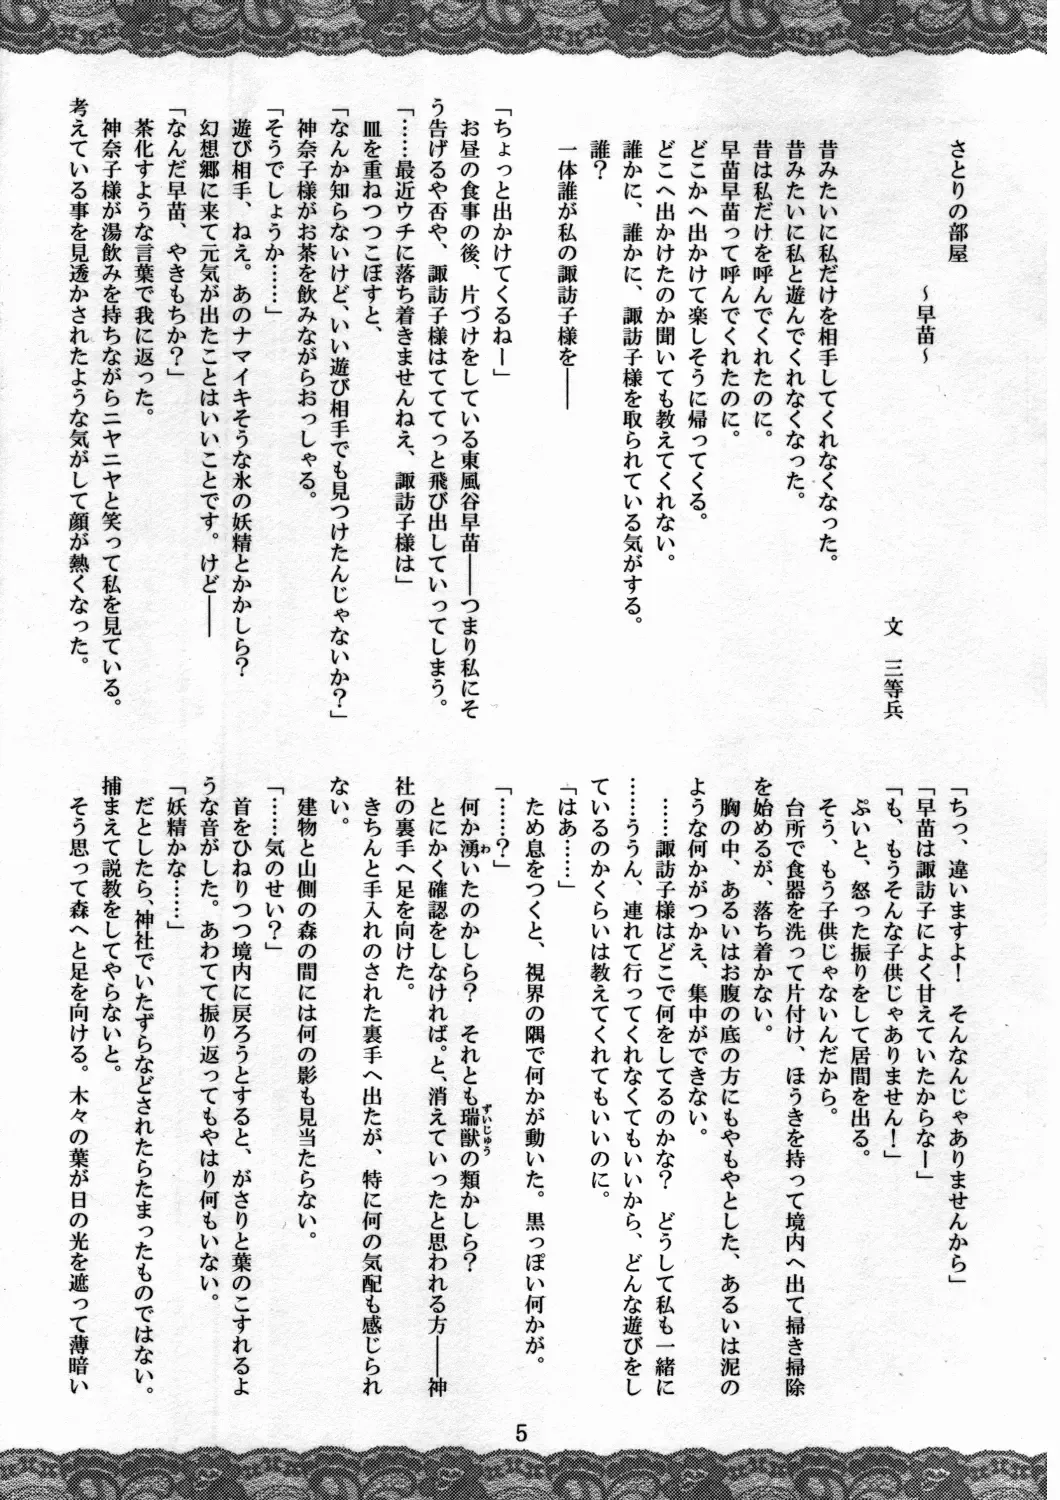 さとりの部屋
～早苗～
文　三等兵
昔みたいに私だけを相手してくれなくなった。
昔みたいに私と遊んでくれなくなった。
昔は私だけを呼んでくれたのに。
早苗早苗って呼んでくれたのに。
どこかへ出かけて楽しそうに帰ってくる。
どこへ出かけたのか聞いても教えてくれない。
誰かに、誰かに、諏訪子様を取られている気がする。
誰？
一体誰が私の諏訪子様を――
「ちょっと出かけてくるねー」
お昼の食事の後、片づけをしている東風谷早苗――つまり私にそ
う告げるや否や、諏訪子様はてててっと飛び出していってしまう。
「……最近ウチに落ち着きませんねえ、諏訪子様は」
皿を重ねつつこぼすと、
「なんか知らないけど、いい遊び相手でも見つけたんじゃないか？」
神奈子様がお茶を飲みながらおっしゃる。
「そうでしょうか……」
遊び相手、ねえ。あのナマイキそうな氷の妖精とかかしら？
幻想郷に来て元気が出たことはいいことです。けど――
「なんだ早苗、やきもちか？」
茶化すような言葉で我に返った。
神奈子様が湯飲みを持ちながらニヤニヤと笑って私を見ている。
考えている事を見透かされたような気がして顔が熱くなった。
「ちっ、違いますよ！　そんなんじゃありませんから」
「早苗は諏訪子によく甘えていたからなー」
「も、もうそんな子供じゃありません！」
ぷいと、怒った振りをして居間を出る。
そう、もう子供じゃないんだから。
台所で食器を洗って片付け、ほうきを持って境内へ出て掃き掃除
を始めるが、落ち着かない。
胸の中、あるいはお腹の底の方にもやもやとした、あるいは泥の
ような何かがつかえ、集中ができない。
……諏訪子様はどこで何をしてるのかな？　どうして私も一緒に
……ううん、連れて行ってくれなくてもいいから、どんな遊びをし
ているのかくらいは教えてくれてもいいのに。
「はあ……」
ため息をつくと、視界の隅で何かが動いた。黒っぽい何かが。
「……？」
何か湧いたのかしら？　それとも瑞獣の類かしら？
とにかく確認をしなければ。と、消えていったと思われる方――神
社の裏手へ足を向けた。
きちんと手入れのされた裏手へ出たが、特に何の気配も感じられ
ない。
建物と山側の森の間には何の影も見当たらない。
「……気のせい？」
首をひねりつつ境内に戻ろうとすると、がさりと葉のこすれるよ
うな音がした。あわてて振り返ってもやはり何もいない。
「妖精かな……」
だとしたら、神社でいたずらなどされたらたまったものではない。
捕まえて説教をしてやらないと。
そう思って森へと足を向ける。木々の葉が日の光を遮って薄暗い
5